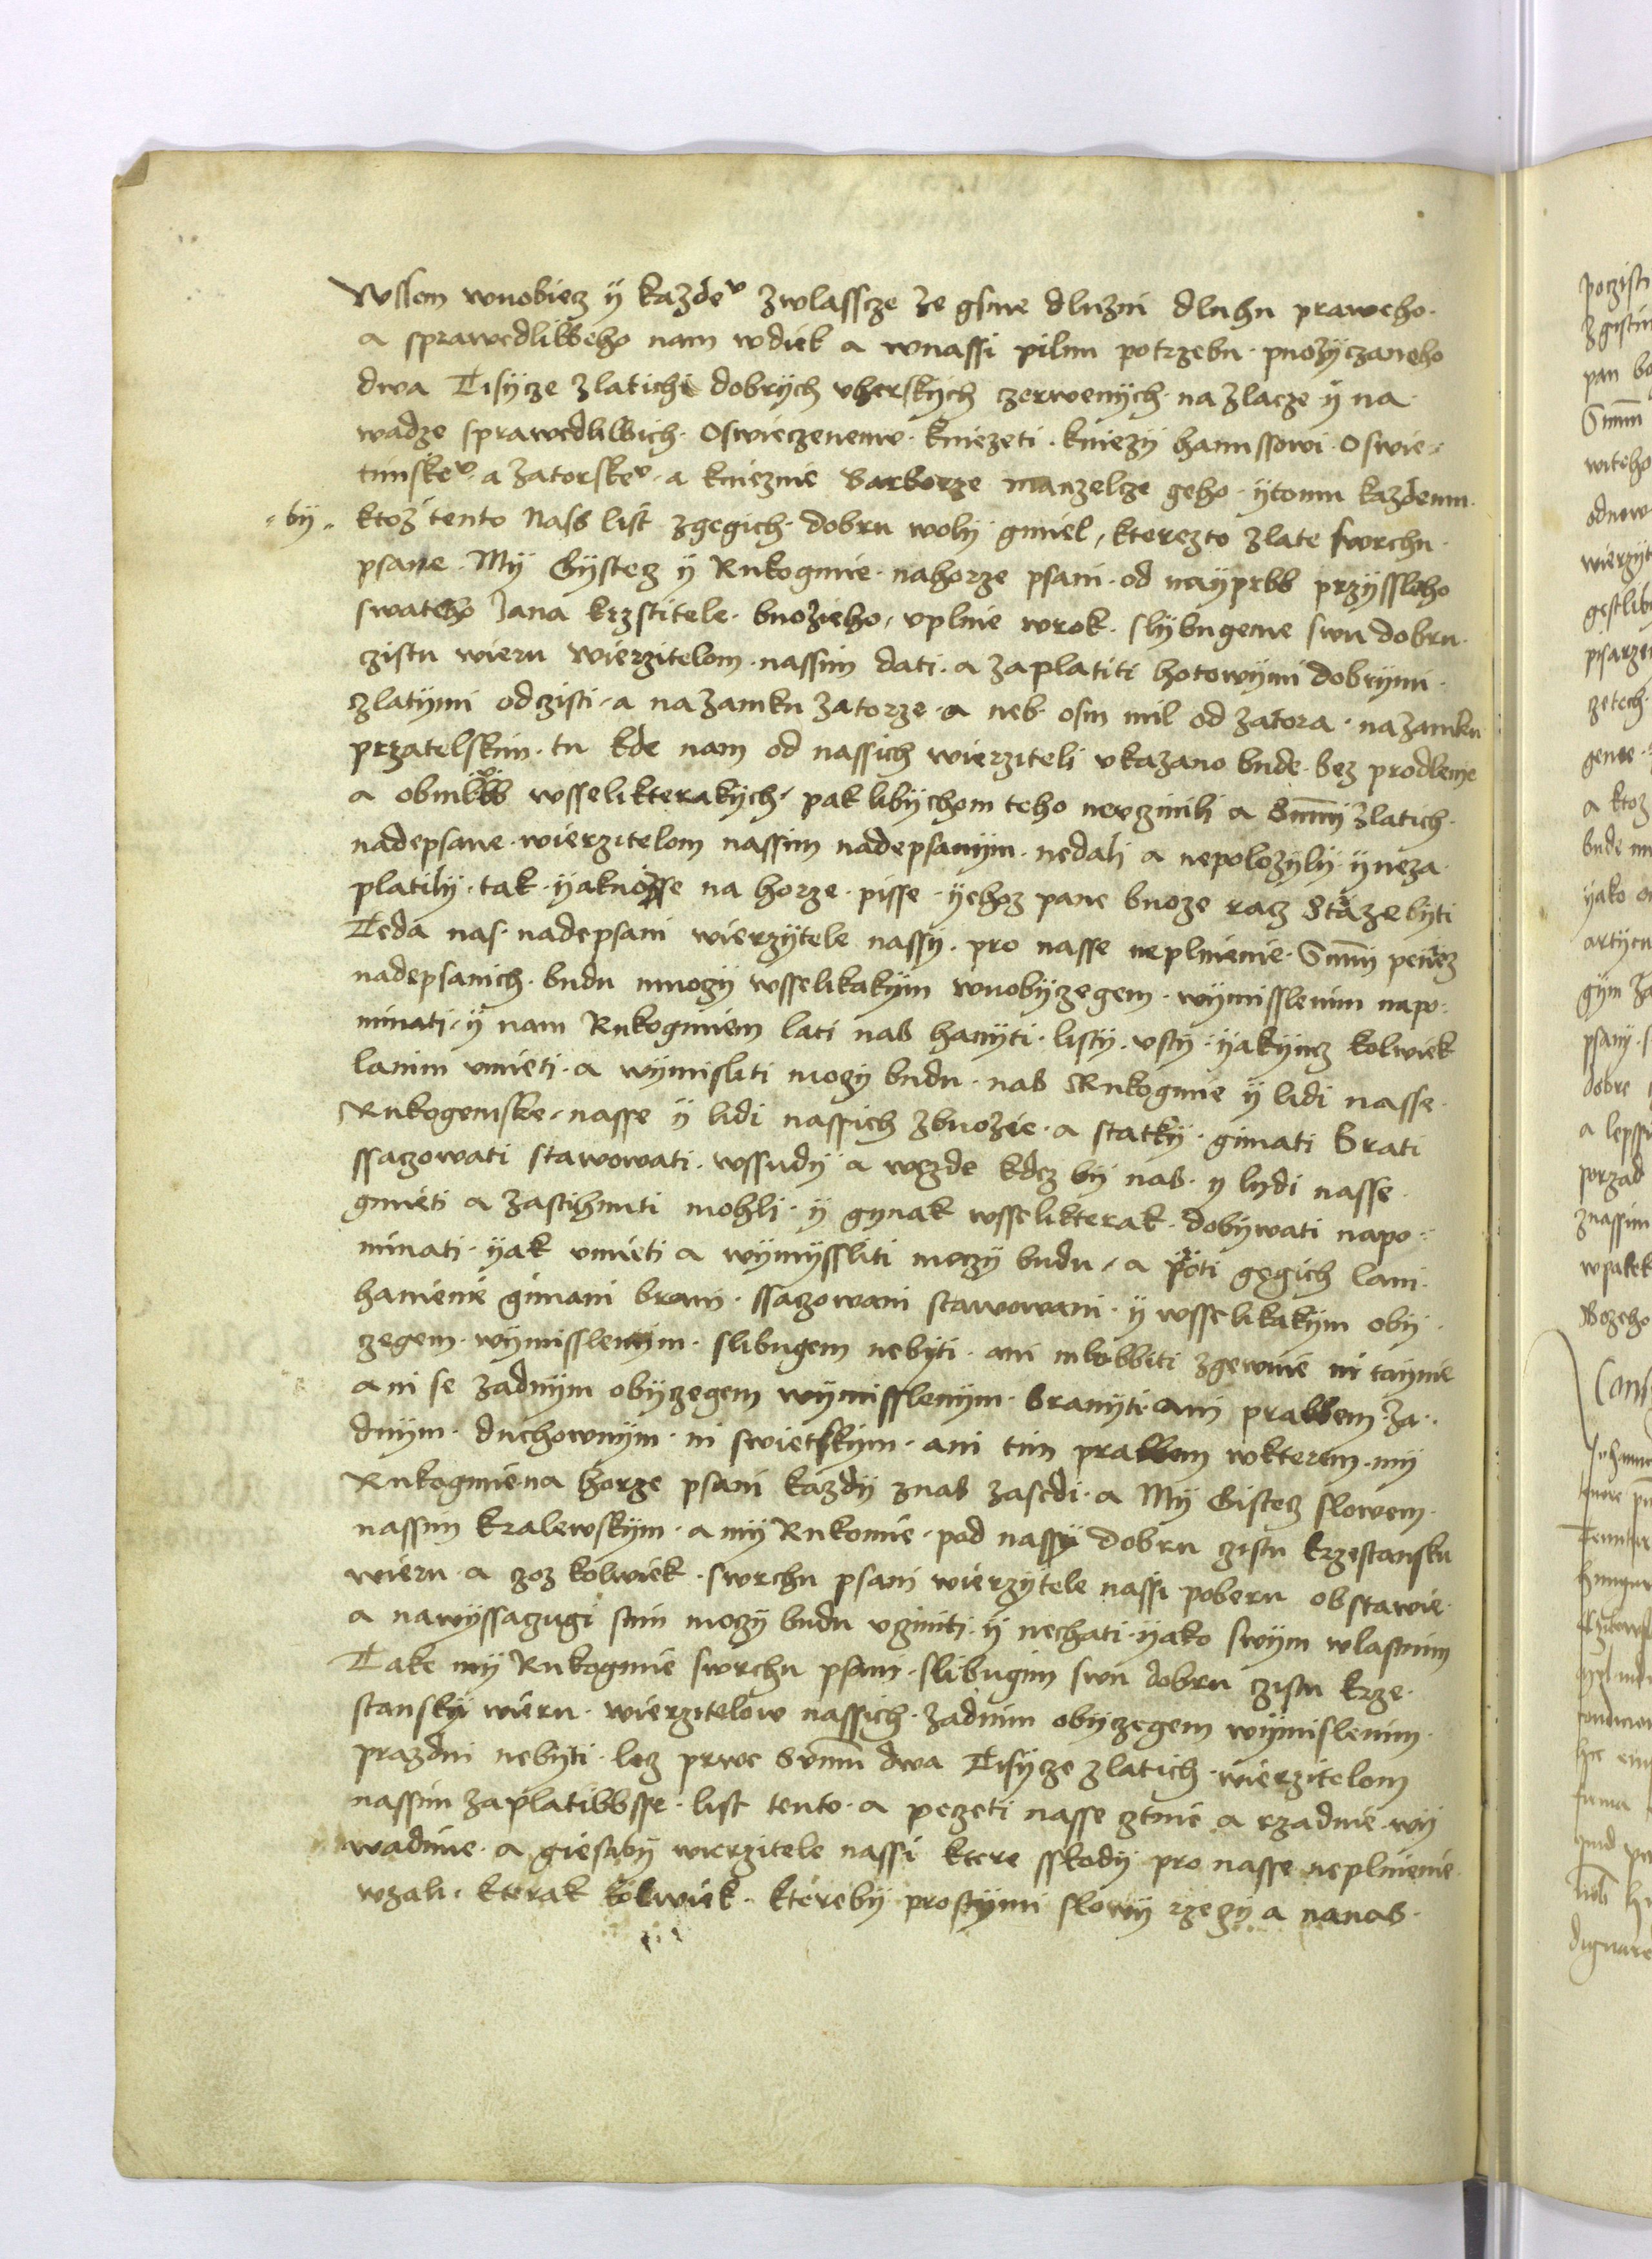 Wssem wuobiecz ÿ kazdeᵛ zwlasscze ze gsme dluzni dluhu praweho·
a sprawedlibbeho nam wdiek a wnassi pilnu potrzebu· puozÿczaneho
dwa Tisÿcze zlatich dobrÿch vherskÿch czerwenÿch· na zlacze ÿ na
wadze sprawedlibbich· Oswieczenemu· kniezeti· kniezÿ hanussowi· Oswie„
timskeᵛ· a zatorskeᵛ· a knieznie Barborze manzelcze geho· ÿtomu kazdemu·
„bÿ„ ktoz tento Nass list zgegich· dobru wolÿ gmiel, kterezto zlate swrchu·
psane· Mÿ Gÿstecz ÿ Rukogmie· nahorze psani· od naÿprbb przÿssleho
swateho Jana krzstitele· buozieho, vplnie wrok· slÿbugeme swu dobru·
czistu wieru wierzitelom· nassim dati· a zaplatiti hotowÿmi dobrÿmi·
zlatÿmi odczisti· a na zamku zatorze· a neb· osm mil od zatora· na zamku
przatelskim· tu kde nam od nassich wierziteli vkazano bude· bez prodlenie
a obmibb wsselikterakÿch· pak libÿchom teho nevczinili a Summÿ zlatich·
nadepsane· wierzitelom nassim nadepsanÿm· nedali a nepolozÿlÿ· ÿneza·
platilÿ· tak· ÿaknosse na horze· pisse· ÿehoz pane buoze racz Stáze bÿti
Teda nas· nadepsani wierzÿtele nassÿ· pro nasse neplnienie· Summÿ peniez
nadepsanich· budu mnozÿ wsselikakÿm wuobÿczegem· wÿmisslenim napo·
minati· ÿ nam Rukogmiem lati nas hanÿti· listÿ· vstÿ· ÿakÿmz kolwiek
lanim vmieti· a wÿmisliti mozÿ budu· nas Rukogmie ÿ lidi nasse·
Rukogemske· nasse ÿ lidi nassich zbuozie· a statkÿ· gimati Brati
ssaczowati stawowati· wssudÿ a wezde kdez bÿ nas· ÿ lÿdi nasse
gmieti a zastihnuti mohli· ÿ gÿnak wsselikterak· dobÿwati napo„
minati· ÿak vmieti a wÿmÿssliti moczÿ budu, a proti gegich lani·
hanienie gimani brani· ssaczowani stawowani· ÿ wsselikakÿm obÿ·
czegem· wÿmisslenÿm· slibugem nebÿti· ani mlobbiti zgewnie ni taÿnie
ani se zadnÿm obÿczegem wÿmisslenÿm· branÿti· ani prabbem· za·
dnÿm· duchownÿm· ni swietskÿm· ani tim prabbem wkterem· mÿ
Rukogmie na horze psani kazdÿ znas zasedi· a Mÿ Gistecz slowem·
nassim kralewskÿm· a mÿ Rukomie· pod nassÿ dobru czistu krzestansku
wieru· a czoz kolwiek· swrchu psani wierzÿtele nassi poberu obstawie·
a nawÿssaczugi stim mozÿ budu vcziniti· ÿ nechati· ÿako swÿm wlastnim
Take mÿ Rukogmie swrchu psani· slibugim swu dobru czistu krze·
stanskÿ wieru· wierzitelow nassich· zadnim obÿczegem wÿmislenim·
prazdni nebÿti· lez prwe Summu dwa Tisÿcze zlatich· wierzitelom
nassim zaplatibbsse· list tento· a peczeti nasse cztnie a rzadnie· wÿ
wadime· a giestbÿ wierzitele nassi ktere sskodÿ pro nasse neplnienie·
wzali· kterak kolwiek· kterebÿ prostÿmi slowÿ rzeczÿ a nanas·